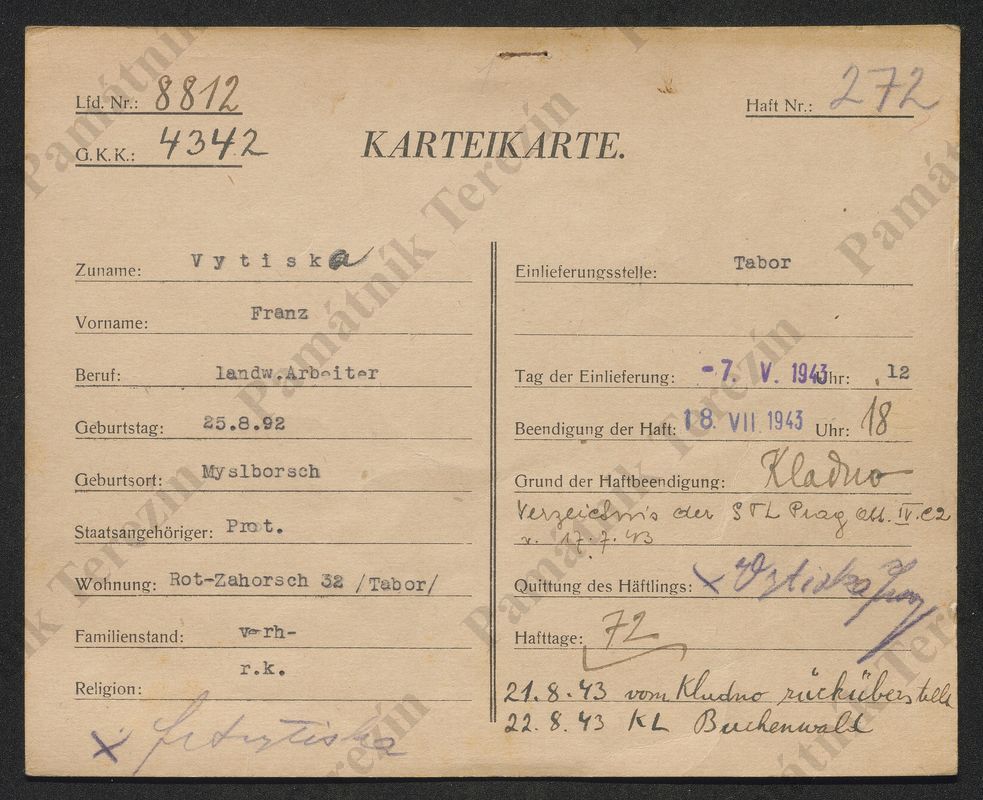 Lfd. Nr.: 8812
G.K.K.: 4342
Haft Nr.: 272
KARTEIKARTE.
Zuname: Vytiska
Vorname: Franz
Beruf: landw.Arbeiter
Geburtstag: 25.8.92
Geburtsort: Myslborsch
Staatsangehöriger: Prot.
Wohnung: Rot-Zahorsch 32 /Tabor/
Familienstand: verh-
Religion: r.k.
Einlieferungsstelle: Tabor
Tag der Einlieferung: -7. V. 1943 Uhr: 12
Beendigung der Haft: 18. VII. 1943 Uhr: 18
Grund der Haftbeendigung: Kladno
Verzeichnis der STL Prag IV C2
v. 17.7.43
Quittung des Häftlings: x Vytiska
Hafttage: 72
21.8.43 vom Kladno rücküberstellt
22.8.43 KL Buchenwald
Památník Terezín
Památník Terezín
Památník Terezín
Památník Terezín